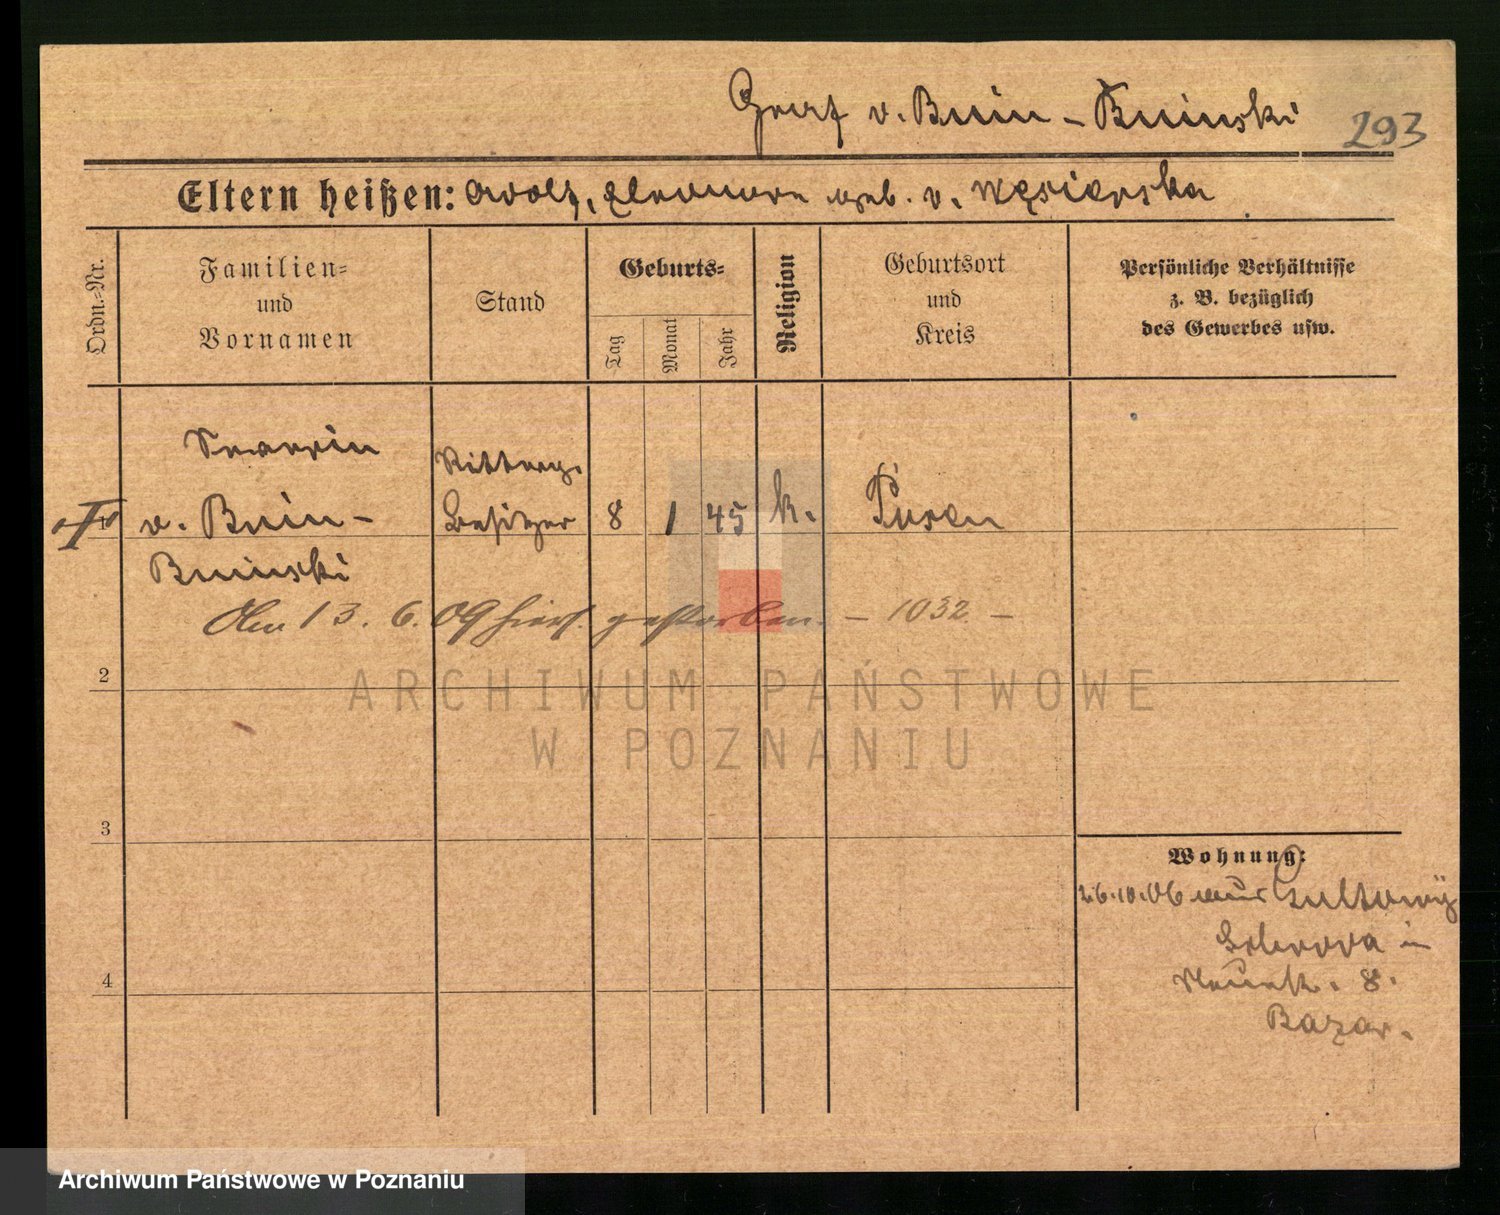 Graf v. Bnin - Bninski 293
Eltern heißen: Adolf, Eleonore geb. v. Węsierska
Ordn.=Nr.
Familien=
und
Vornamen
Stand
Geburts=
Tag
Monat
Jahr
Religion
Geburtsort
und
Kreis
Persönliche Verhältnisse
z. B. bezüglich
des Gewerbes usw.
v. Bnin -
Bninski
Ritterg.
besitzer
8 1 45 k. Posen
Am 13. 6. 09 hier gestorben. - 1032 -
2
3
4
Wohnung:
26.10.06 aus Gultowy
in
Neuestr. 8.
Bazar.
ARCHIWUM PAŃSTWOWE
W POZNANIU
Archiwum Państwowe w Poznaniu